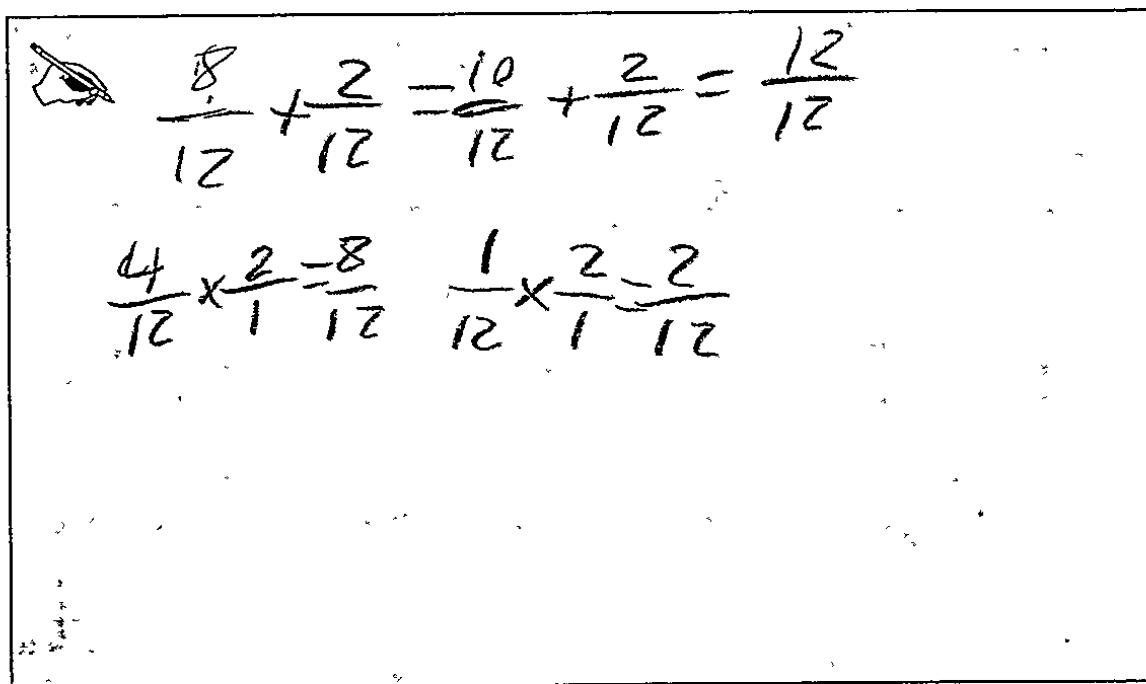 8/12 + 2/12 = 10/12 + 2/12 = 12/12
4/12 x 2/1 = 8/12   1/12 x 2/1 = 2/12